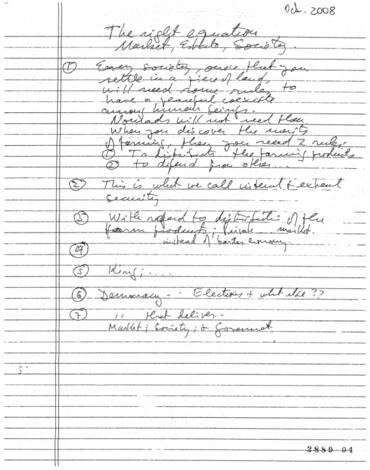 Oct. 2008
The right equation
Market, Estate, Society.
① Every society, once that you
settle in a piece of land,
will need some rules to
have a peaceful coexistence
among human beings.
Nomads will not need them
When you discover the merits
of farming, then you need 2 rules,
① To distribute the farming products
② to defend from others...
② This is what we call internal & external
security
③ With regard to distribution of the
farm products; Private market.
instead of barter economy.
④
⑤ King; ....
⑥ Democracy - Elections + what else ??
⑦ " that deliver.
Market; Society; & Government
2889 04